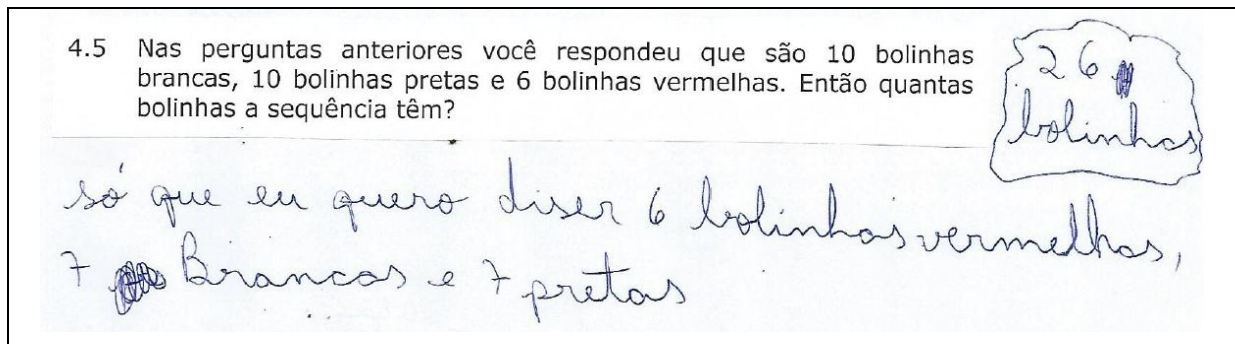 4.5 Nas perguntas anteriores você respondeu que são 10 bolinhas
brancas, 10 bolinhas pretas e 6 bolinhas vermelhas. Então quantas
bolinhas a sequência têm?
26
bolinhas
só que eu quero diser 6 bolinhas vermelhas,
7 Brancas e 7 pretas